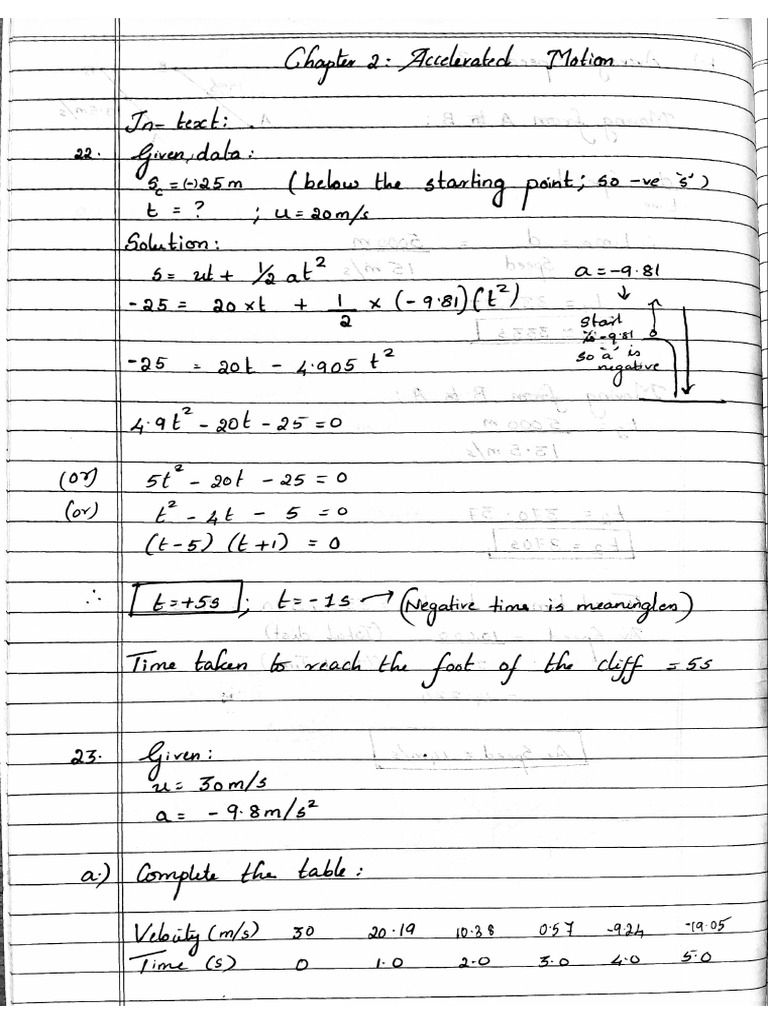 Chapter 2: Accelerated Motion
In-text:
22. Given, data:
Sc = (-)25m (below the starting point; so -ve 's')
t = ? ; u = 20m/s
Solution:
s = ut + 1/2 at² a = -9.81
-25 = 20 × t + 1/2 × (-9.81)(t²)
Start
-9.81
so 'a' is
negative
-25 = 20t - 4.905 t²
4.9t² - 20t - 25 = 0
(or) 5t² - 20t - 25 = 0
(or) t² - 4t - 5 = 0
(t-5) (t+1) = 0
∴ t = +5s ; t = -1s → (Negative time is meaningless)
Time taken to reach the foot of the cliff = 5s
23. Given:
u = 30m/s
a = -9.8m/s²
a.) Complete the table:
Velocity (m/s) 30 20.19 10.38 0.57 -9.24 -19.05
Time (s) 0 1.0 2.0 3.0 4.0 5.0